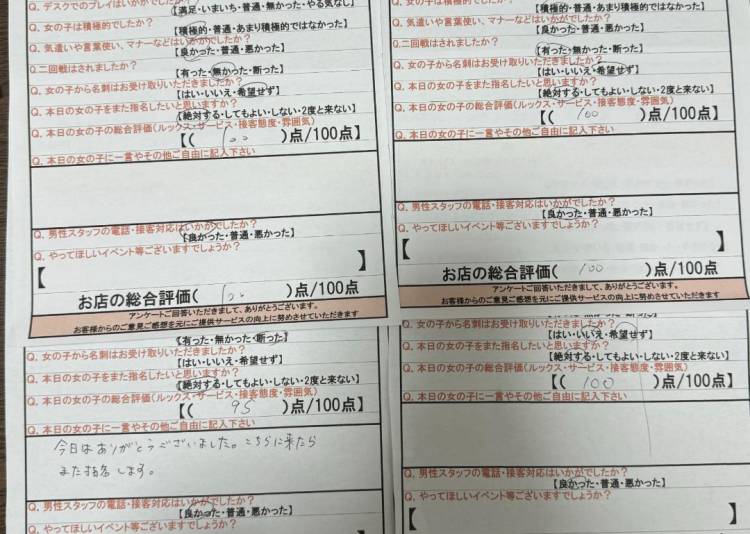 Q. デスクでのプレイはいかがでしたか?
【満足・いまいち・普通・無かった・やる気なし】
Q. 女の子は積極的でしたか?
【積極的・普通・あまり積極的ではなかった】
Q. 気遣いや言葉使い、マナーなどはいかがでしたか?
【良かった・普通・悪かった】
Q.二回戦はされましたか?
【有った・無かった・断った】
Q. 女の子から名刺はお受け取りいただきましたか?
【はい・いいえ・希望せず】
Q. 本日の女の子をまた指名したいと思いますか?
【絶対する・してもよい・しない・2度と来ない】
Q. 本日の女の子の総合評価(ルックス・サービス・接客態度・雰囲気)
【( 100 )点/100点】
Q. 本日の女の子に一言やその他ご自由に記入下さい
Q. 男性スタッフの電話・接客対応はいかがでしたか?
【良かった・普通・悪かった】
Q. やってほしいイベント等ございますでしょうか?
【 】
お店の総合評価( 100 )点/100点
アンケートご回答いただきまして、ありがとうございます。
お客様からのご意見ご感想を元にご提供サービスの向上に努めさせていただきます
【積極的・普通・あまり積極的ではなかった】
Q. 気遣いや言葉使い、マナーなどはいかがでしたか?
【良かった・普通・悪かった】
Q.二回戦はされましたか?
【有った・無かった・断った】
Q. 女の子から名刺はお受け取りいただきましたか?
【はい・いいえ・希望せず】
Q. 本日の女の子をまた指名したいと思いますか?
【絶対する・してもよい・しない・2度と来ない】
Q. 本日の女の子の総合評価(ルックス・サービス・接客態度・雰囲気)
【( 100 )点/100点】
Q. 本日の女の子に一言やその他ご自由に記入下さい
Q. 男性スタッフの電話・接客対応はいかがでしたか?
【良かった・普通・悪かった】
Q. やってほしいイベント等ございますでしょうか?
【 】
お店の総合評価( 100 )点/100点
アンケートご回答いただきまして、ありがとうございます。
お客様からのご意見ご感想を元にご提供サービスの向上に努めさせていただきます
【有った・無かった・断った】
Q. 女の子から名刺はお受け取りいただきましたか?
【はい・いいえ・希望せず】
Q. 本日の女の子をまた指名したいと思いますか?
【絶対する・してもよい・しない・2度と来ない】
Q. 本日の女の子の総合評価(ルックス・サービス・接客態度・雰囲気)
【( 95 )点/100点】
Q. 本日の女の子に一言やその他ご自由に記入下さい
今日はありがとうございました。こちらに来たら
また指名します。
Q. 男性スタッフの電話・接客対応はいかがでしたか?
【良かった・普通・悪かった】
Q. やってほしいイベント等ございますでしょうか?
Q. 女の子から名刺はお受け取りいただきましたか?
【はい・いいえ・希望せず】
Q. 本日の女の子をまた指名したいと思いますか?
【絶対する・してもよい・しない・2度と来ない】
Q. 本日の女の子の総合評価(ルックス・サービス・接客態度・雰囲気)
【( 100 )点/100点】
Q. 本日の女の子に一言やその他ご自由に記入下さい
Q. 男性スタッフの電話・接客対応はいかがでしたか?
【良かった・普通・悪かった】
Q. やってほしいイベント等ございますでしょうか?
【 】